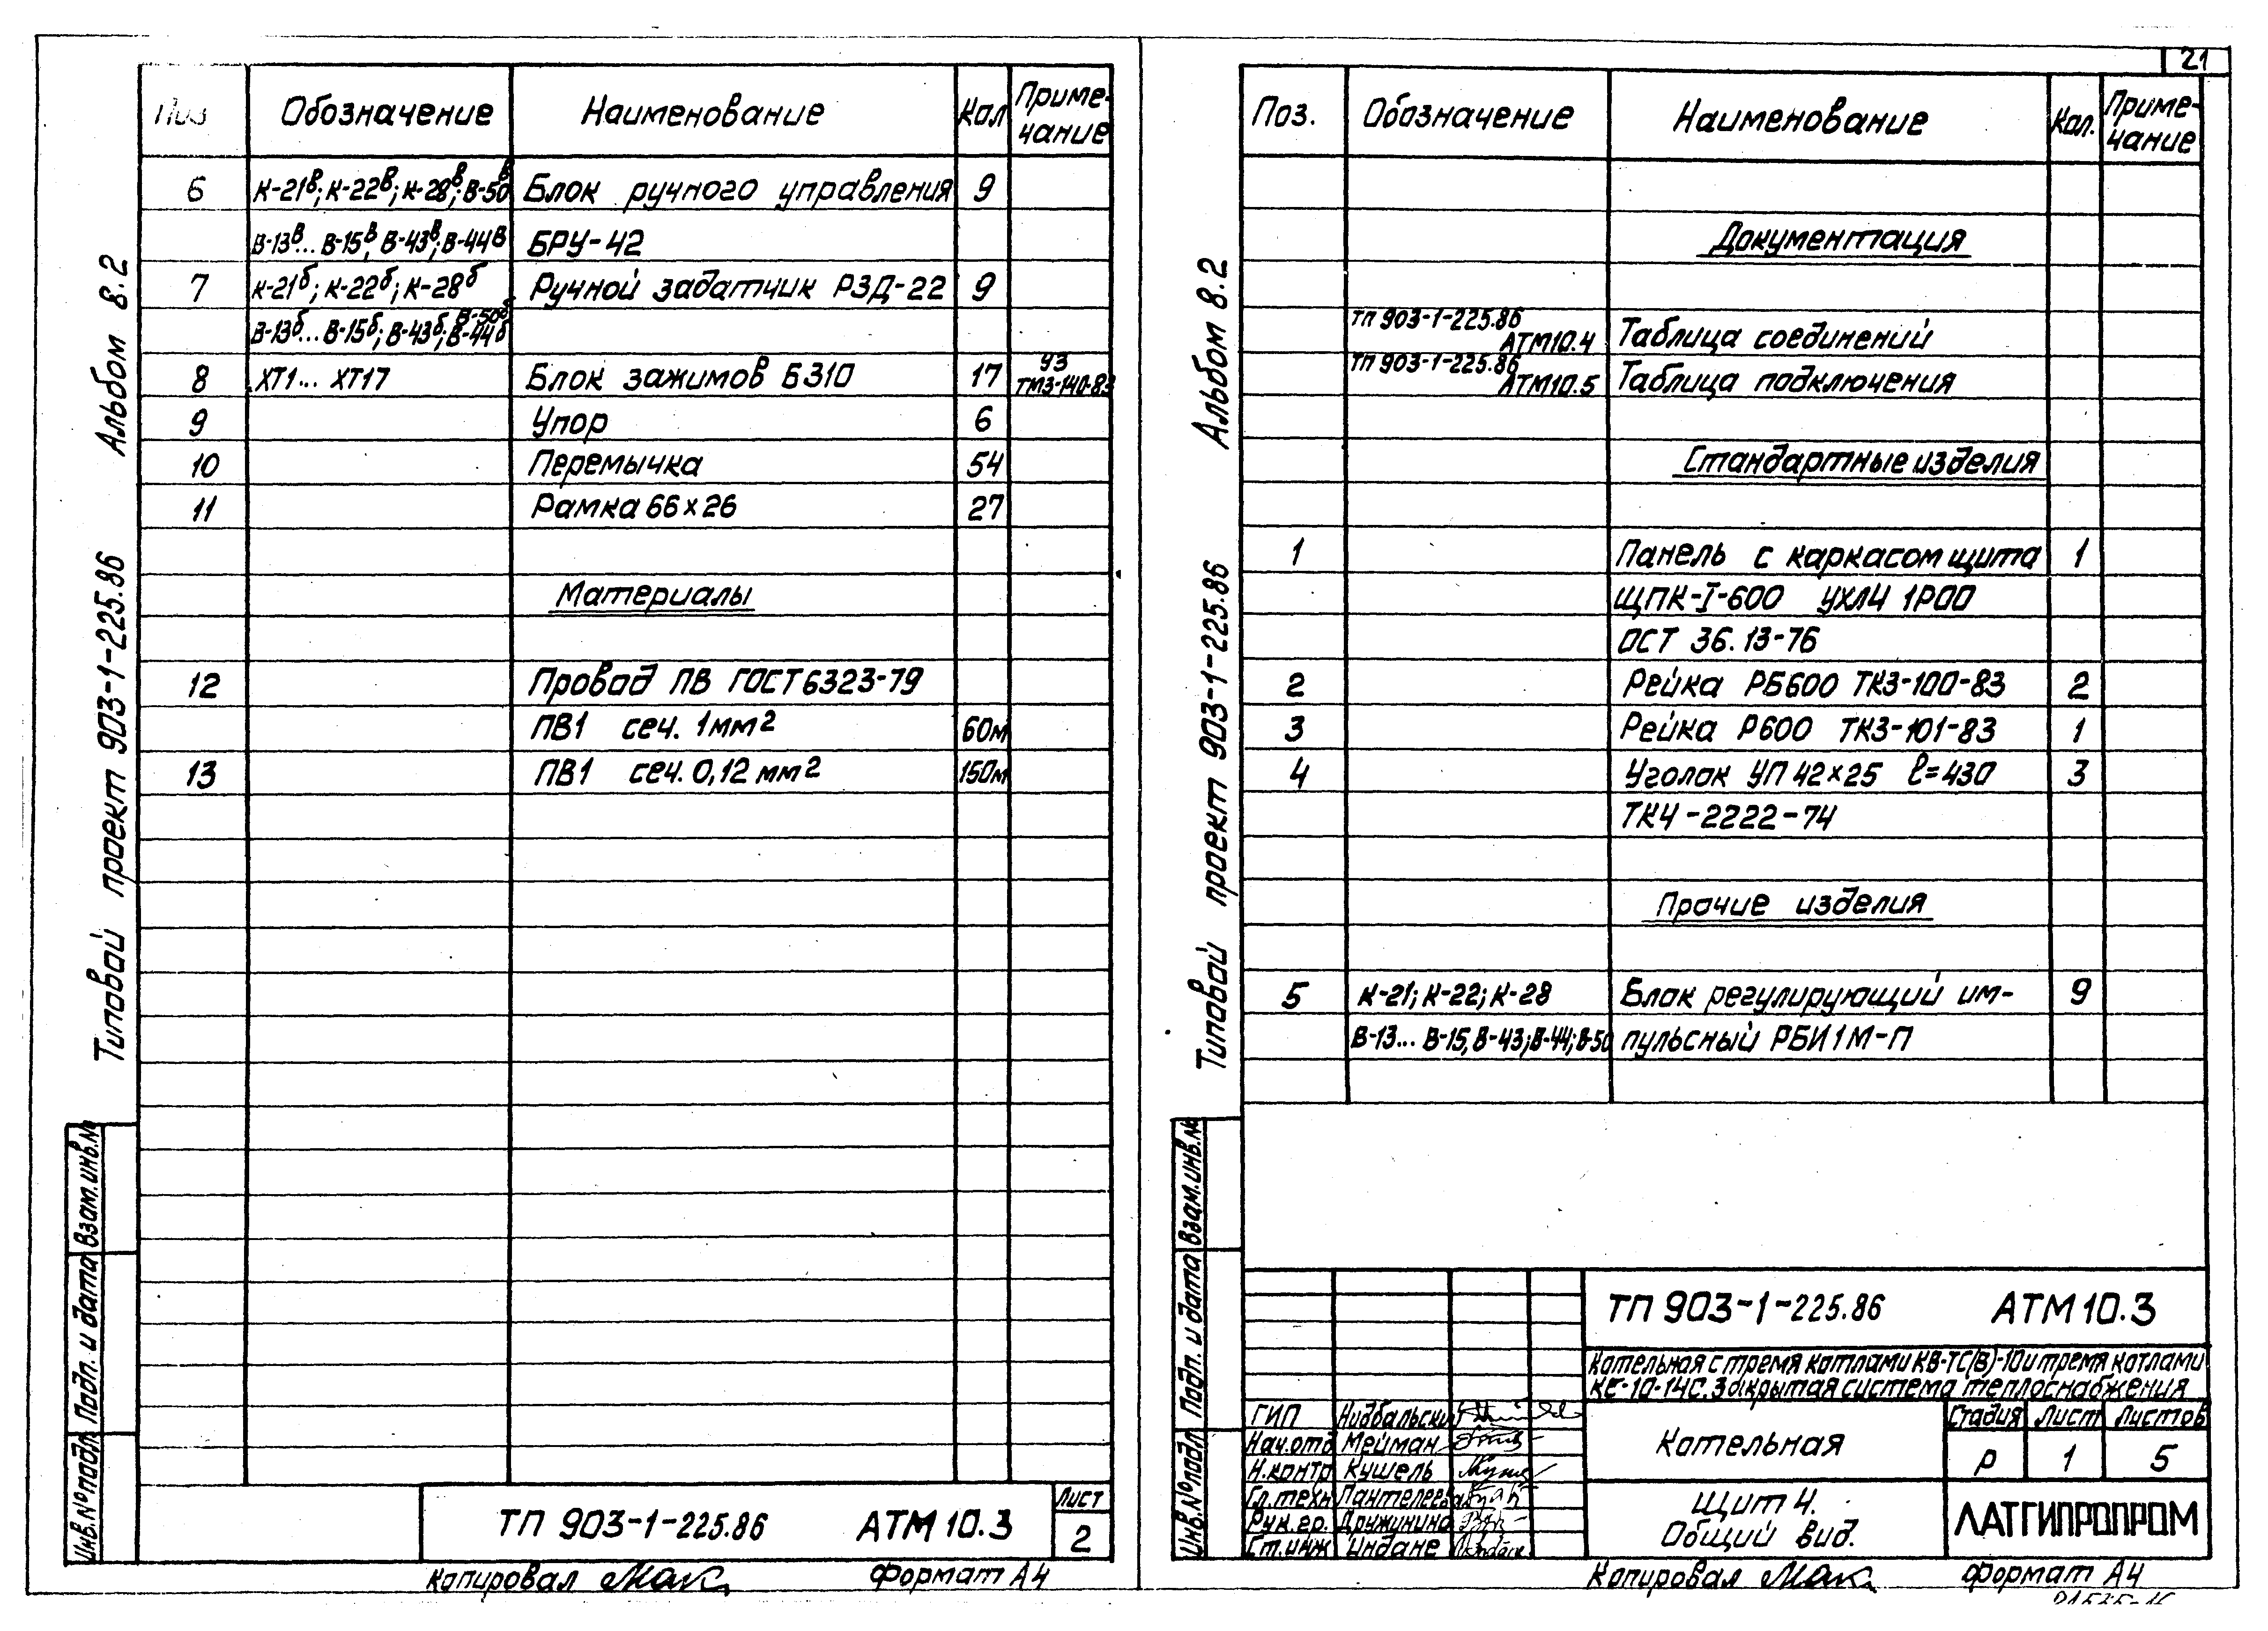 Альбом 8.2
Типовой проект 903-1-225.86
Поз Обозначение Наименование Кол Приме-
чание
6 К-21в; К-22в; К-28в; В-50в Блок ручного управления 9
В-13в... В-15в, В-43в; В-44в БРУ-42
7 К-21б; К-22б; К-28б Ручной задатчик РЗД-22 9
В-50б
В-13б... В-15б; В-43б; В-44б
8 ХТ1... ХТ17 Блок зажимов БЗ10 17 У3
ТМ3-140-83
9 Упор 6
10 Перемычка 54
11 Рамка 66х26 27
Материалы
12 Провод ПВ ГОСТ 6323-79
ПВ1 сеч. 1мм2 60м
13 ПВ1 сеч. 0,12 мм2 150м
Инв.№подл. Подп. и дата Взам.инв.№
ТП 903-1-225.86 АТМ 10.3
Лист
2
Копировал Формат А4
21
Альбом 8.2
Типовой проект 903-1-225.86
Поз. Обозначение Наименование Кол. Приме-
чание
Документация
ТП 903-1-225.86
АТМ10.4 Таблица соединений
ТП 903-1-225.86
АТМ10.5 Таблица подключения
Стандартные изделия
1 Панель с каркасом щита 1
ЩПК-I-600 УХЛ4 1Р00
ОСТ 36.13-76
2 Рейка РБ600 ТК3-100-83 2
3 Рейка Р600 ТК3-101-83 1
4 Уголок УП 42х25 ℓ=430 3
ТК4-2222-74
Прочие изделия
5 К-21; К-22; К-28 Блок регулирующий им- 9
В-13... В-15, В-43; В-44; В-50 пульсный РБИ1М-П
Инв.№подл Подп. и дата Взам.инв.№
ТП 903-1-225.86 АТМ 10.3
Котельная с тремя котлами КВ-ТС(В)-10 и тремя котлами
КЕ-10-14С. Закрытая система теплоснабжения
ГИП Нидбальский
Нач.отд Мейман
Н.контр Кушель
Гл.техн Пантелеева
Рук.гр. Дружинина
Ст.инж Индане
Котельная
Стадия Лист Листов
Р 1 5
Щит 4.
Общий вид.
ЛАТГИПРОПРОМ
Копировал Формат А4